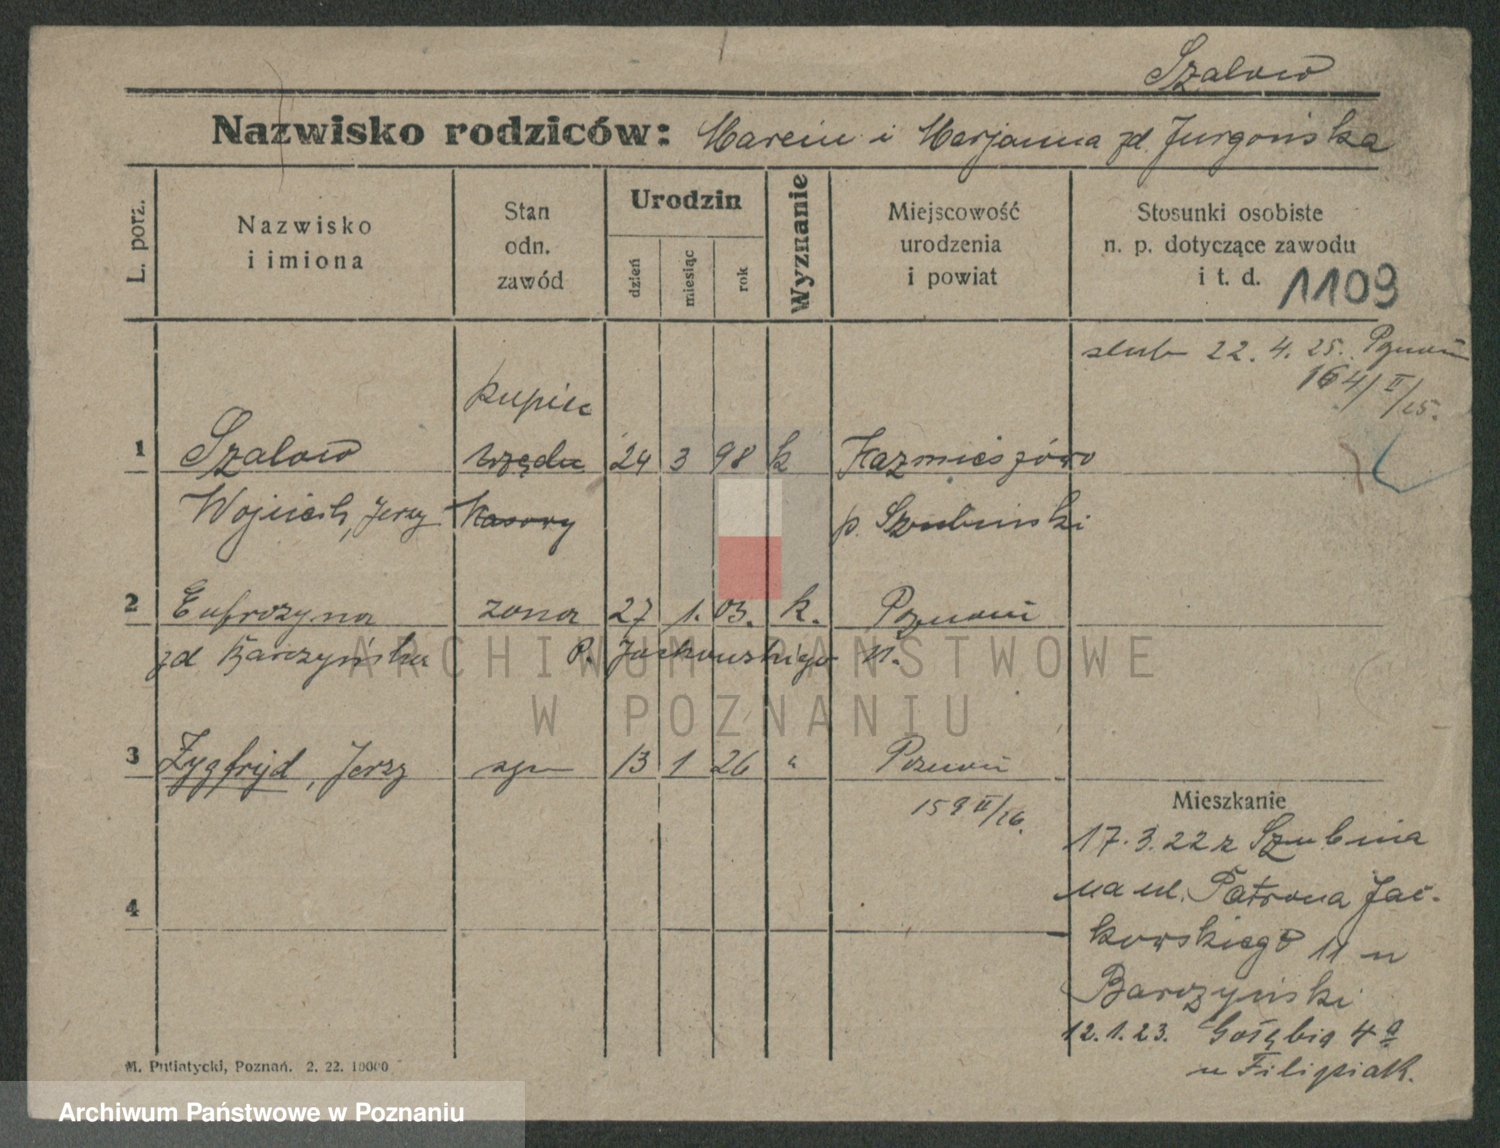 Szalow
Nazwisko rodziców: Marcin i Marjanna zd. Jurgońska
L. porz.
Nazwisko
i imiona
Stan
odn.
zawód
Urodzin
dzień
miesiąc
rok
Wyznanie
Miejscowość
urodzenia
i powiat
Stosunki osobiste
n. p. dotyczące zawodu
i t. d. 1109
slub 22. 4. 25. Poznań
164/II/25.
kupiec
1 Szalow urzędn 24 3 98 k Kazmieszówo
Wojciech, Jerzy kasowy p. Szubinski
2 Eufrozyna zona 27 1. 03. k. Poznań
zd Barczyńska P. Jackowskiego 11.
3 Zygfryd, Jerzy syn 13 1 26 " Poznań
159 II/26.
4
Mieszkanie
17. 3. 22 z Szubina
na ul. Patrona Jac-
kowskiego 11 u
Barczyński
12. 1. 23. Gołębia 4a
u Filipiak.
M. Putiatycki, Poznań. 2. 22. 10000
ARCHIWUM PAŃSTWOWE
W POZNANIU
Archiwum Państwowe w Poznaniu